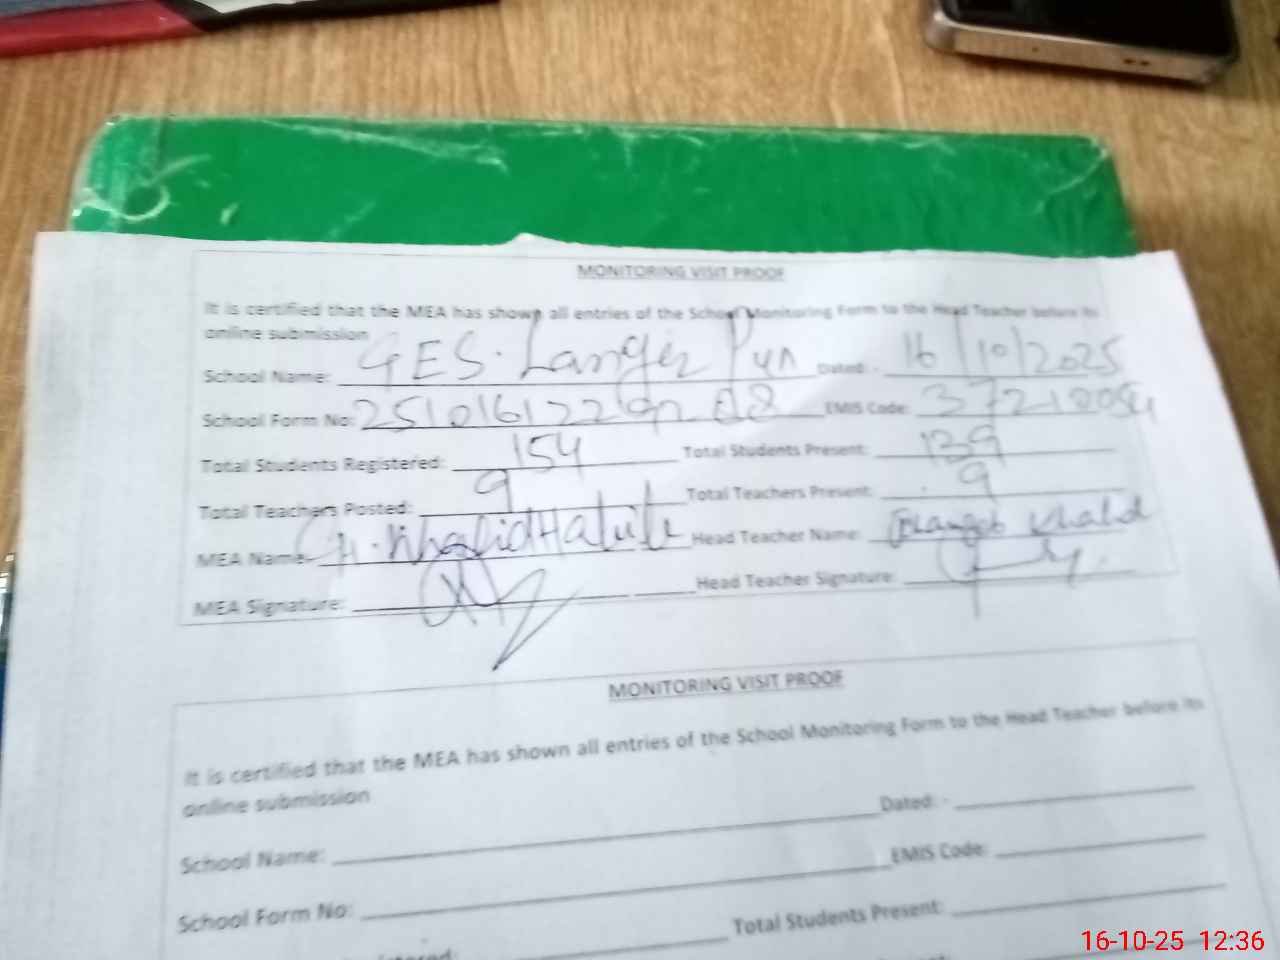 MONITORING VISIT PROOF
It is certified that the MEA has shown all entries of the School Monitoring Form to the Head Teacher before its
online submission
School Name: GES. Langer Pur Dated: - 16/10/2025
School Form No: EMIS Code:
Total Students Registered: 154 Total Students Present: 139
Total Teachers Posted: 9 Total Teachers Present: 9
MEA Name: Ch. Khalid Head Teacher Name: Khalid
MEA Signature: Head Teacher Signature:
MONITORING VISIT PROOF
It is certified that the MEA has shown all entries of the School Monitoring Form to the Head Teacher before its
online submission
School Name: Dated: -
School Form No: EMIS Code:
Total Students Present:
16-10-25 12:36